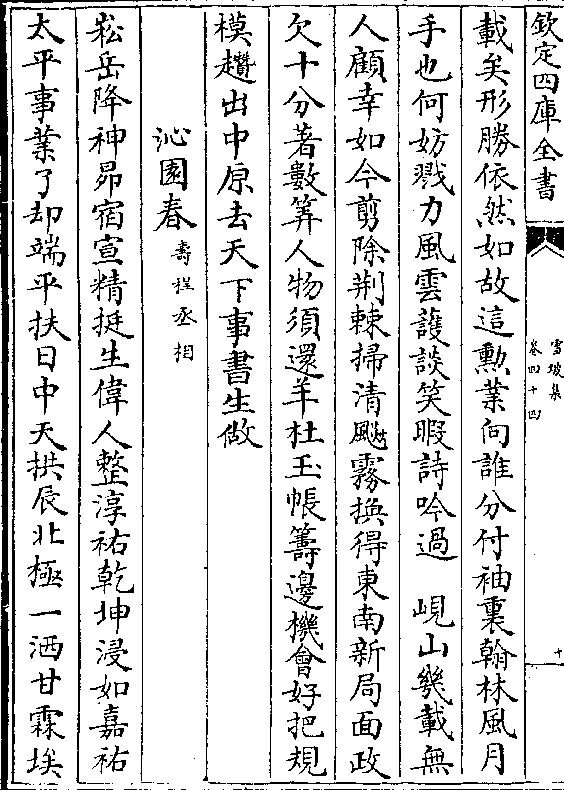 欽定四庫全書
雪坡集
卷四十四
十
載矣形勝依然如故這勲業向誰分付袖裏翰林風月
手也何妨戮力風雲護談笑暇詩吟過　峴山幾載無
人顧幸如今剪除荆棘掃清颷霧換得東南新局面政
欠十分著數筭人物須還羊杜玉帳籌邊機會好把規
模趲出中原去天下事書生做
沁園春壽程丞相
崧岳降神昴宿宣精挺生偉人整淳祐乾坤浸如嘉祐
太平事業了却端平扶日中天拱辰北極一洒甘霖埃